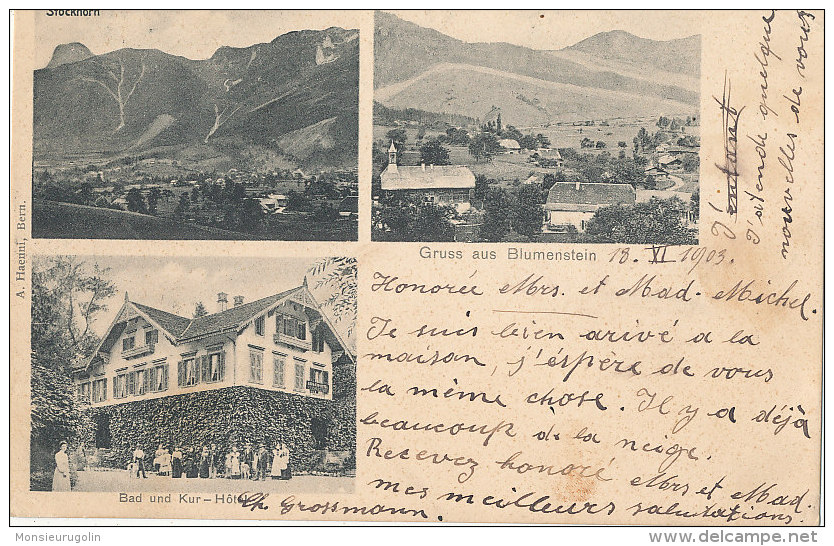 Stockhorn
A. Haenni, Bern.
Gruss aus Blumenstein 18. VI 1903.
Honorée Mrs. et Mad. Michel.
Je suis bien arrivé a la
maison, j'espère de vous
la même chose. Il y a déjà
beaucoup de la neige.
Recevez honoré Mrs et Mad.
mes meilleurs salutations.
Bad und Kur-Hôtel
Ch. Grossmann.
J'attend quelque
nouvelles de vous
Monsieurugolin
www.delcampe.net